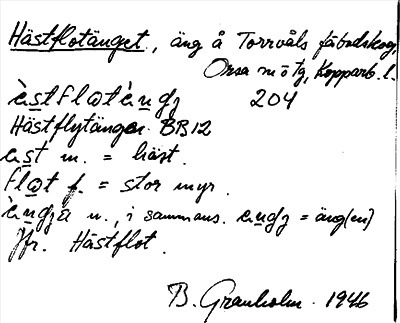 Hästflotänget., äng å Torrvåls fäbodskog,
Orsa m ö tg, Kopparb. l.
è̀stfl@t èngz 204
Hästflytängen. BB12
est m. = häst.
fl@t f. = stor myr.
èngzä n., i sammans. engz = äng(en)
Jfr. Hästflot.
B. Granholm. 1946